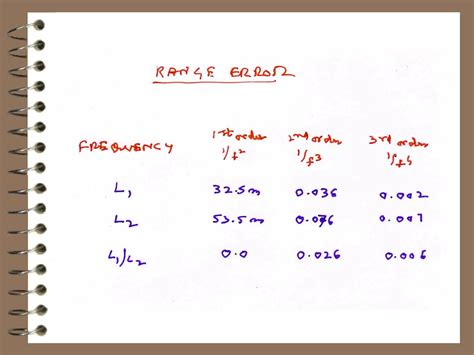 RANGE ERROR
FREQUENCY 1st order 1/f2 2nd order 1/f3 3rd order 1/f4
L1 32.5m 0.036 0.002
L2 53.5m 0.076 0.007
L1/L2 0.0 0.026 0.006